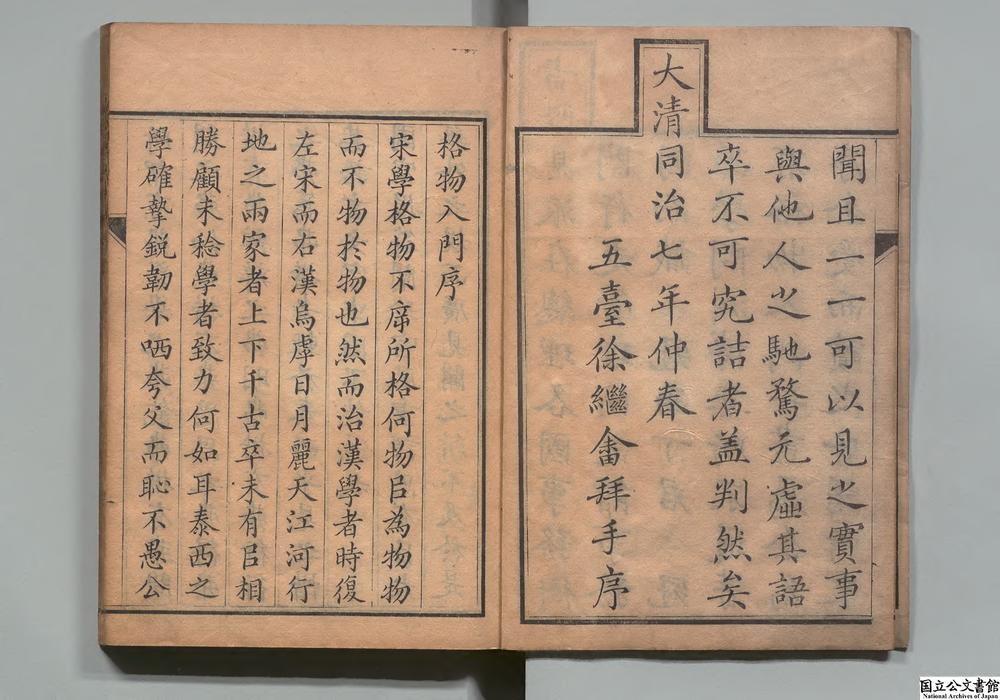 聞且一一可以見之實事
與他人之馳騖元虛其語
卒不可究詰者盖判然矣
大清同治七年仲春
五臺徐繼畬拜手序
格物入門序
宋學格物不席所格何物㠯為物物
而不物於物也然而治漢學者時復
左宋而右漢烏虖日月麗天江河行
地之兩家者上下千古卒未有㠯相
勝顧未稔學者致力何如耳泰西之
學確摯銳韌不哂夸父而恥不愚公
国立公文書館
National Archives of Japan